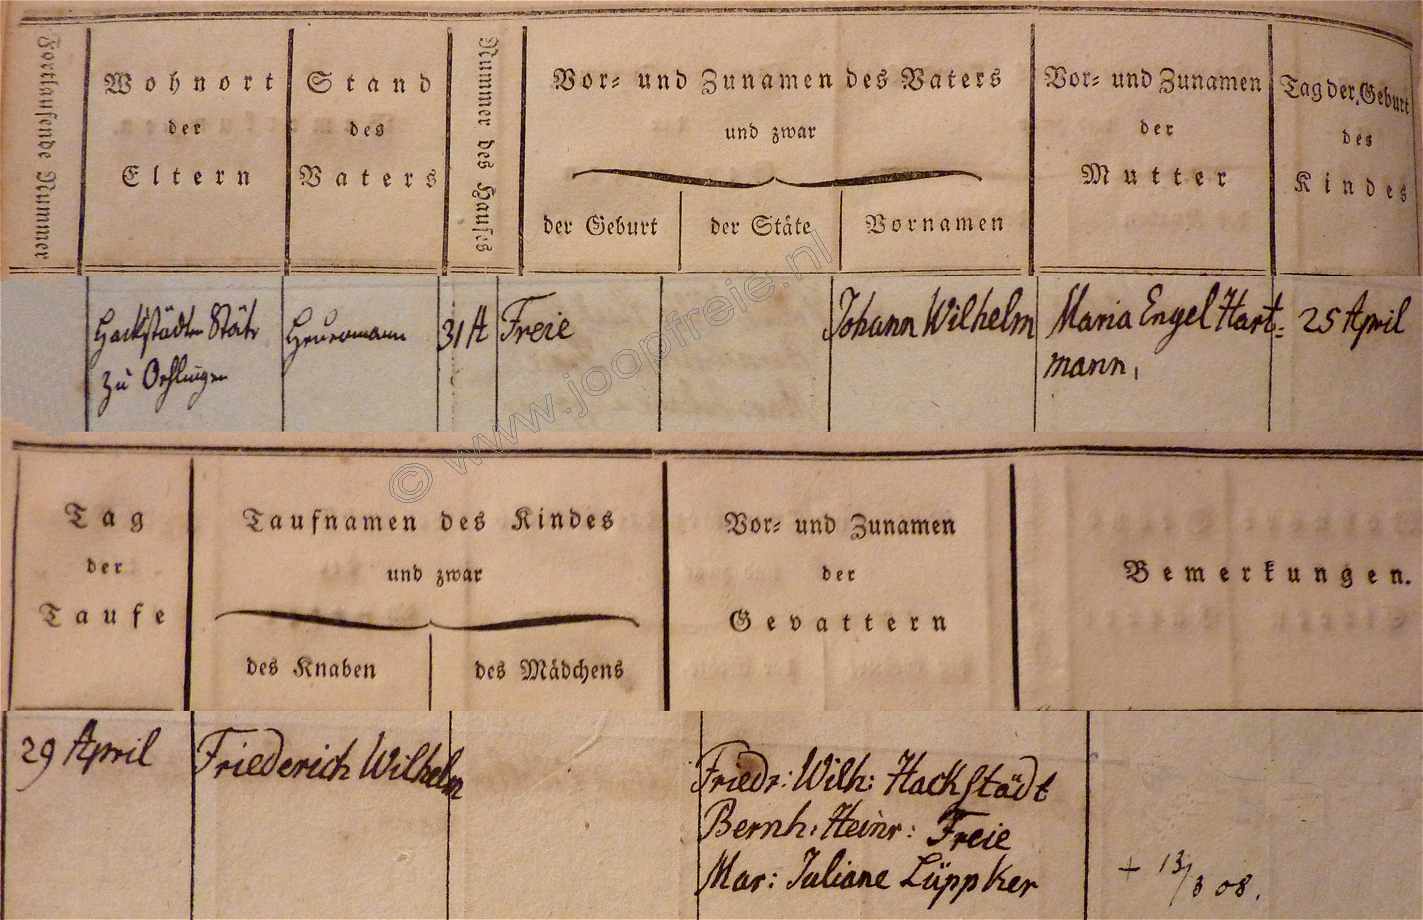 Fortlaufende Nummer
Wohnort
der
Eltern
Stand
des
Vaters
Nummer des Hauses
Vor- und Zunamen des Vaters
und zwar
der Geburt
der Stäte
Vornamen
Vor- und Zunamen
der
Mutter
Tag der Geburt
des
Kindes
Hackstädts Stäte
zu Oehlingen
Heuermann
31 A
Freie
Johann Wilhelm
Maria Engel Hart-
mann,
25 April
© www.joopfreie.nl
Tag
der
Taufe
Taufnamen des Kindes
und zwar
des Knaben
des Mädchens
Vor- und Zunamen
der
Gevattern
Bemerkungen.
29 April
Friederich Wilhelm
Friedr: Wilh: Hackstädt
Bernh: Heinr: Freie
Mar: Juliane Lüppker
+ 13/3 08.